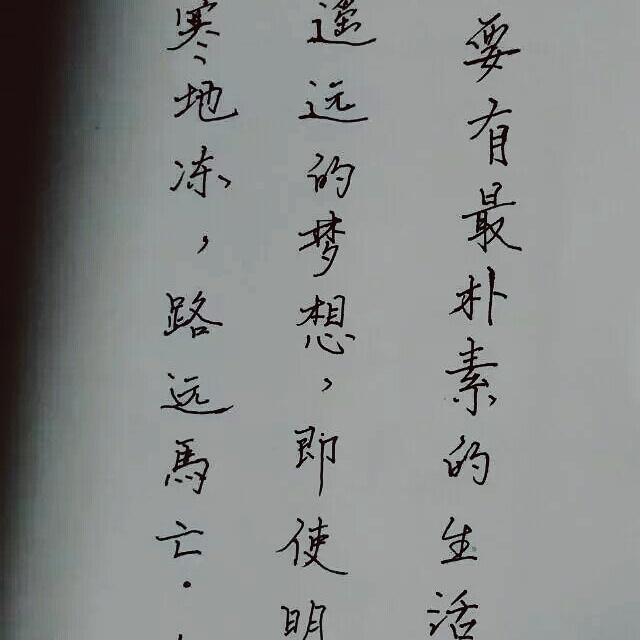 要有最朴素的生活
遥远的梦想,即使明
寒地冻,路远馬亡.